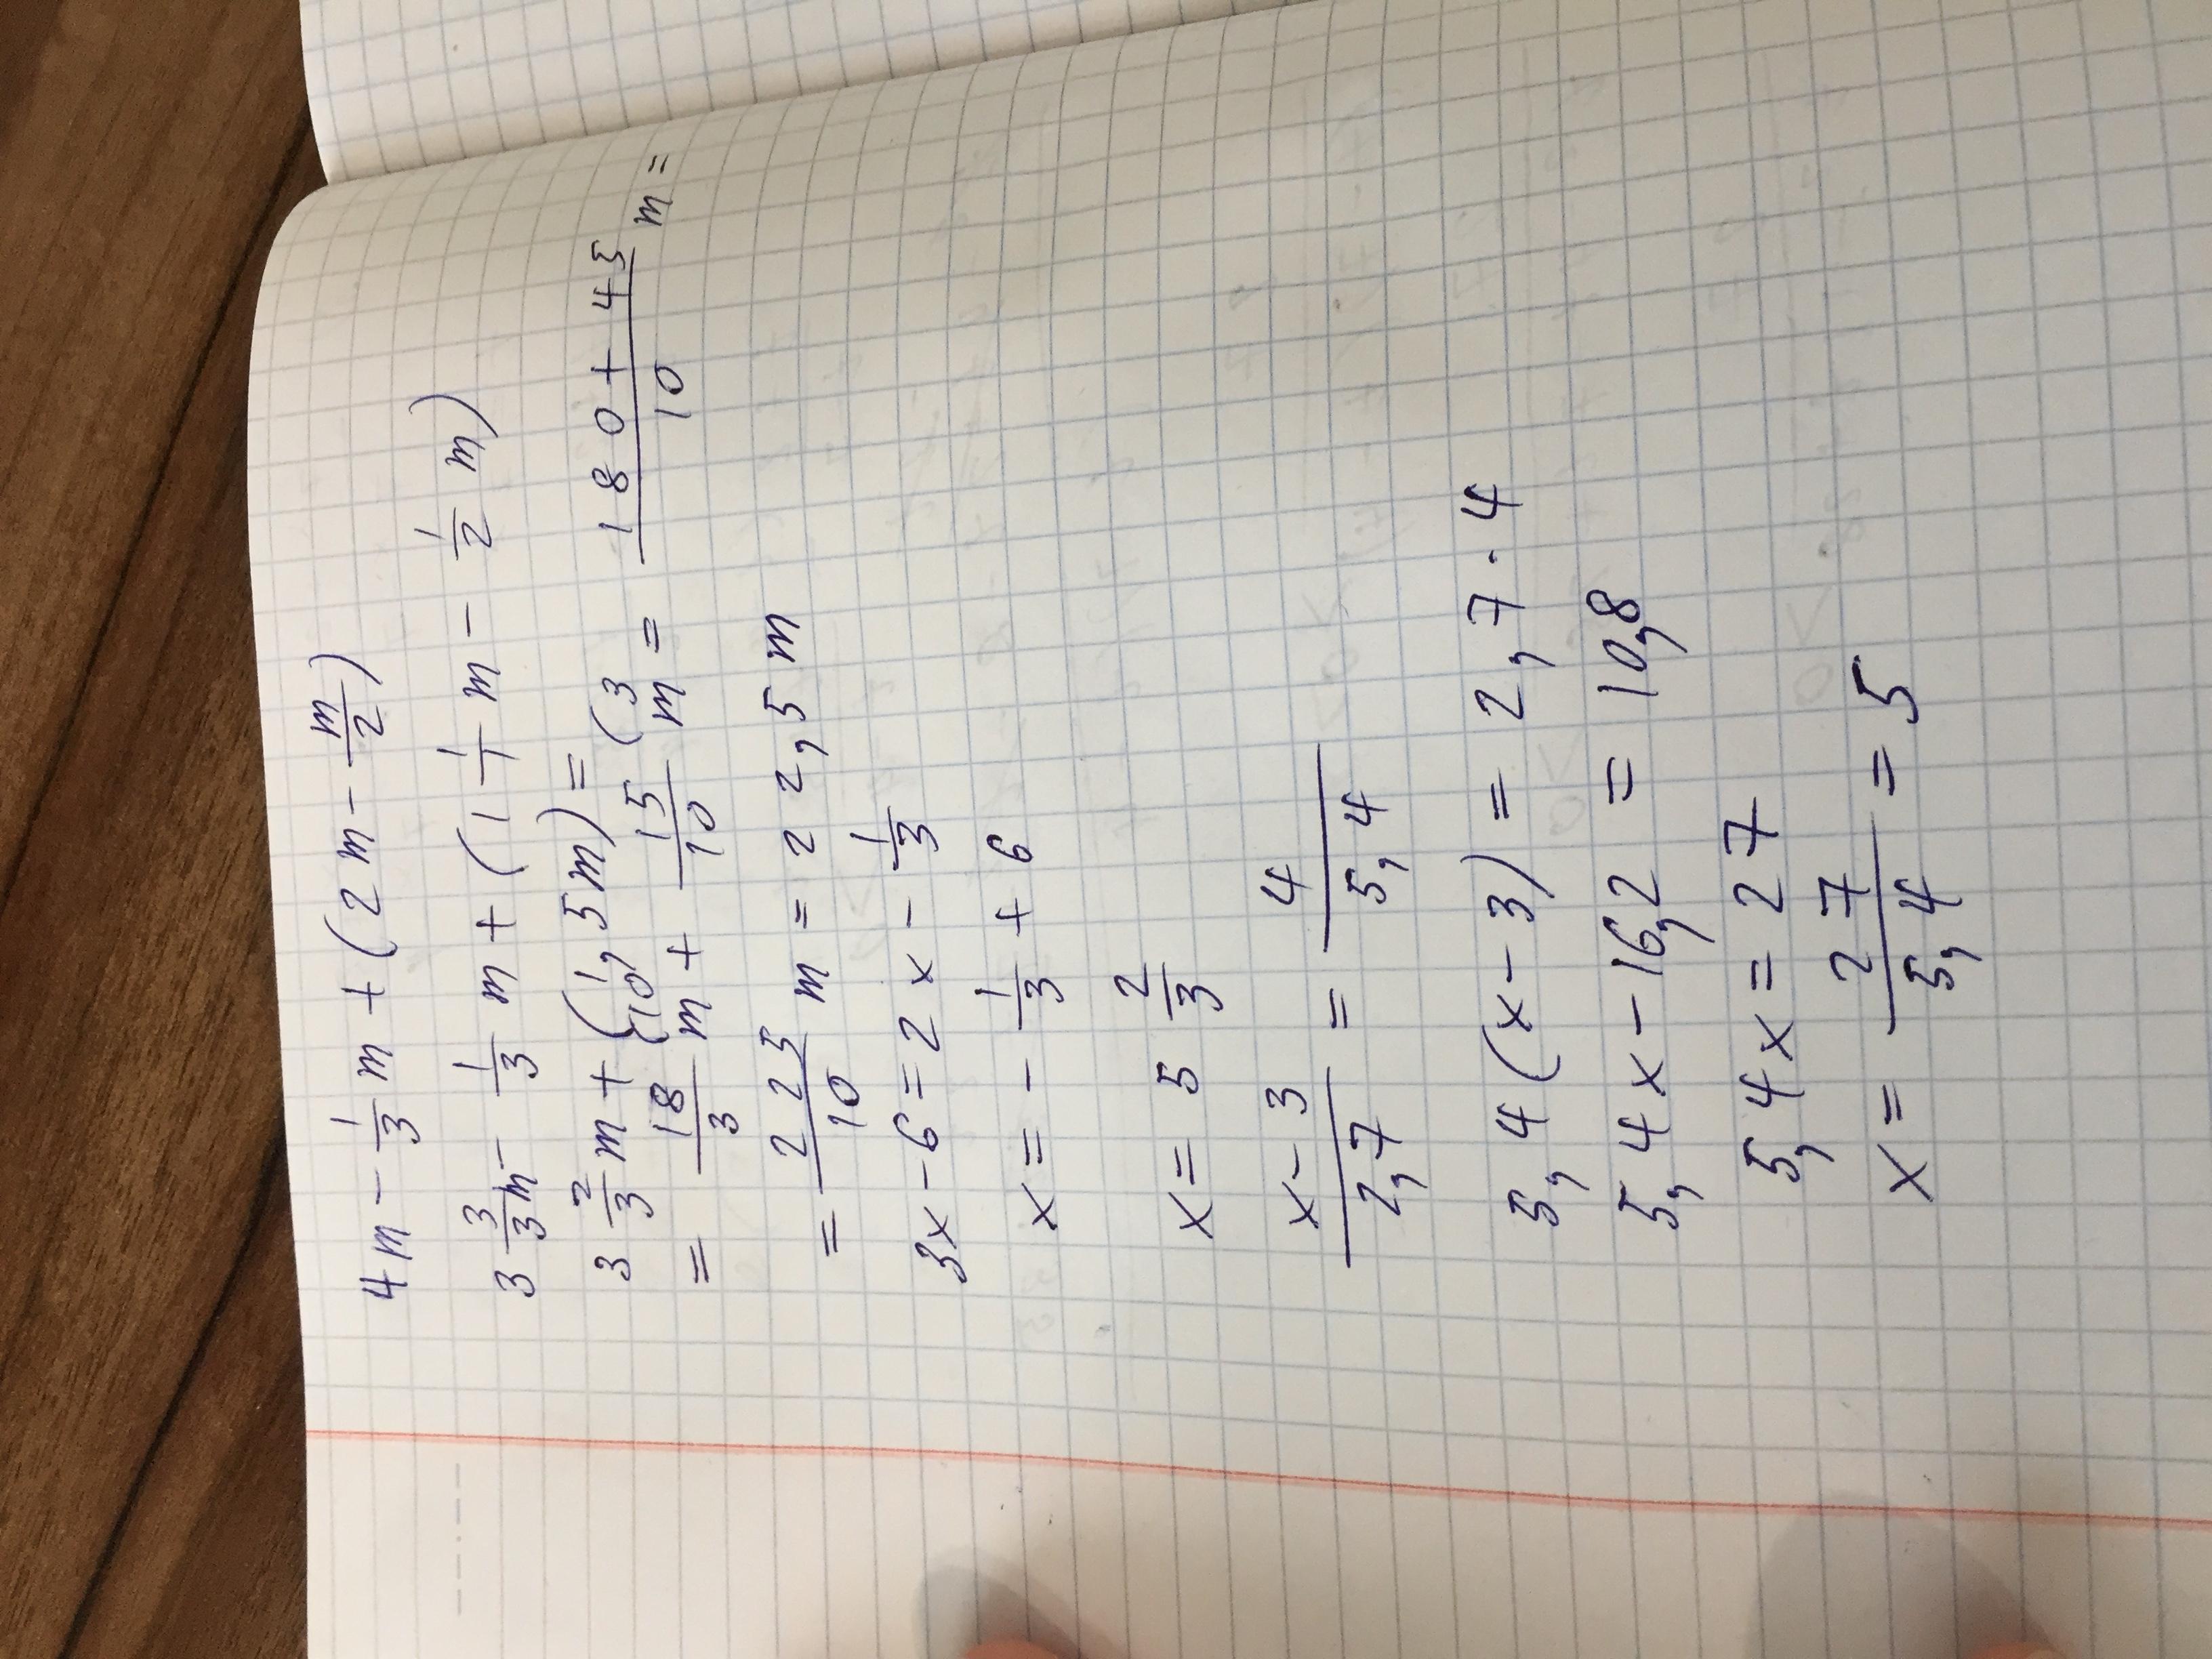 4m - 1/3 m + (2m - m/2)
3 3/3 m - 1/3 m + (1 1/1 m - 1/2 m)
3 2/3 m + (1,5m) =
= 18/3 m + 15/10 (3 m = 180 + 45/10 m =
= 225/10 m = 22,5 m
3x - 6 = 2x - 1/3
x = - 1/3 + 6
x = 5 2/3
x - 3/2,7 = 4/5,4
5,4 (x - 3) = 2,7 · 4
5,4x - 16,2 = 10,8
5,4x = 27
x = 27/5,4 = 5